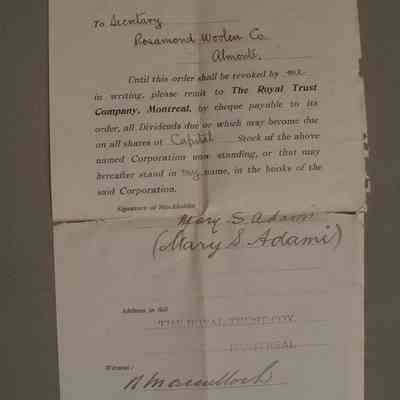 To Secretary
Rosamond Woolen Co
Almonte.
Until this order shall be revoked by me
in writing, please remit to The Royal Trust
Company, Montreal, by cheque payable to its
order, all Dividends due or which may become due
on all shares of Capital Stock of the above
named Corporation now standing, or that may
hereafter stand in my name, in the books of the
said Corporation.
Signature of Stockholder
Mary S. Adami
(Mary S Adami)
Address in full
THE ROYAL TRUST COY.
MONTREAL
Witness: